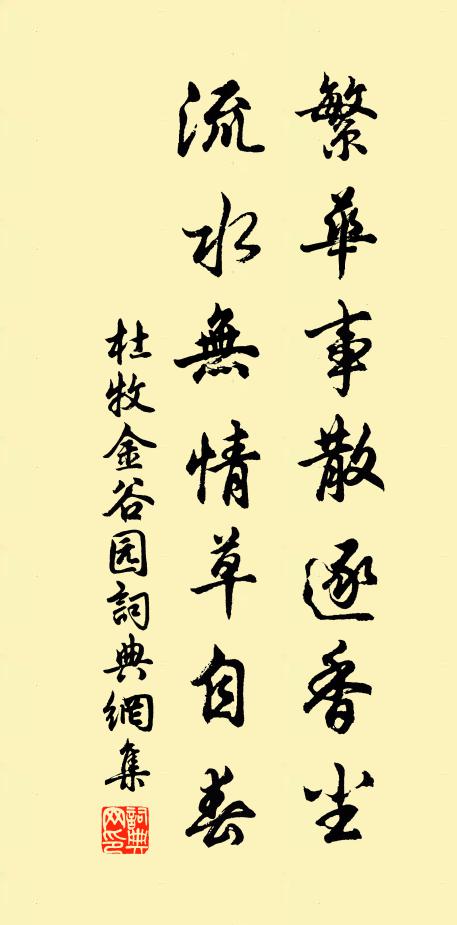 繁華事散逐香尘
流水無情草自春
杜牧金谷园詞典網集
詞典网印